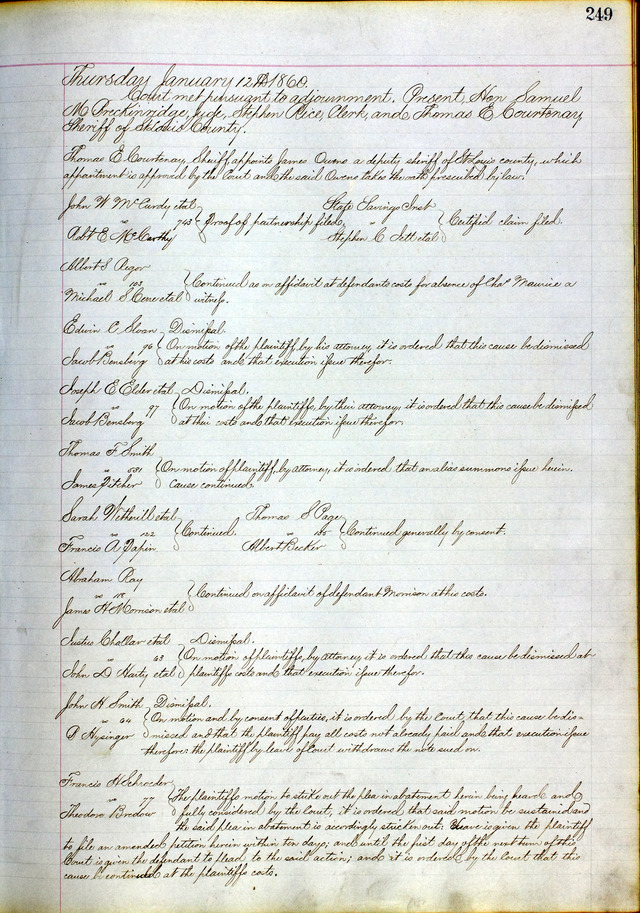 249
Thursday January 12th 1860.
Court met pursuant to adjournment. Present, Hon Samuel
M Breckinridge, Judge, Stephen Rice, Clerk, and Thomas E. Courtenay
Sheriff of St Louis County.
Thomas E. Courtenay, Sheriff appoints James Owens a deputy sheriff of St Louis county, which
appointment is approved by the Court and the said Owens takes the oath prescribed by law.
John W McCurdy etal
vs 743 Proof of partnership filed.
Robt E. McCarthy
State Savings Inst
vs Certified claim filed.
Stephen C etal
Albert S
vs 103 Continued as on affidavit at defendants costs for absence of Chas Maurice a
Michael S etal witness.
Edwin C. Sloan Dismissal.
vs 96 On motion of the plaintiff, by his attorney, it is ordered that this cause be dismissed
Jacob Bensberg at his costs and that execution issue therefor.
Joseph E. Elder etal Dismissal.
vs 97 On motion of the plaintiffs, by their attorney, it is ordered that this cause be dismissed
Jacob Bensberg at their costs and that execution issue therefor.
Thomas F. Smith
vs 531 On motion of plaintiff, by attorney, it is ordered that an alias summons issue herein.
James Cause continued.
Sarah Wetherill etal
vs 122 Continued.
Francis A
Thomas S Page
vs 155 Continued generally by consent.
Albert Becker
Abraham Ray
vs 118 Continued on affidavit of defendant Morrison at his costs.
James H Morrison etal
Justus Challar etal Dismissal.
vs 63 On motion of plaintiffs, by attorney, it is ordered that this cause be dismissed at
John D Harty etal plaintiffs costs and that execution issue therefor.
John H. Smith Dismissal.
vs 34 On motion and by consent of parties, it is ordered by the Court, that this cause be dis=
missed and that the plaintiff pay all costs not already paid and that execution issue
therefor: the plaintiff by leave of Court withdraws the note sued on.
Francis H Schroeder
vs 77 The plaintiffs motion to strike out the plea in abatement herein being heard and
Theodore Bredow fully considered by the Court, it is ordered that said motion be sustained and
the said plea in abatement is accordingly stricken out: Leave is given the plaintiff
to file an amended petition herein within ten days; and until the first day of the next term of this
Court is given the defendant to plead to the said action; and it is ordered by the Court that this
cause be continued at the plaintiffs costs.